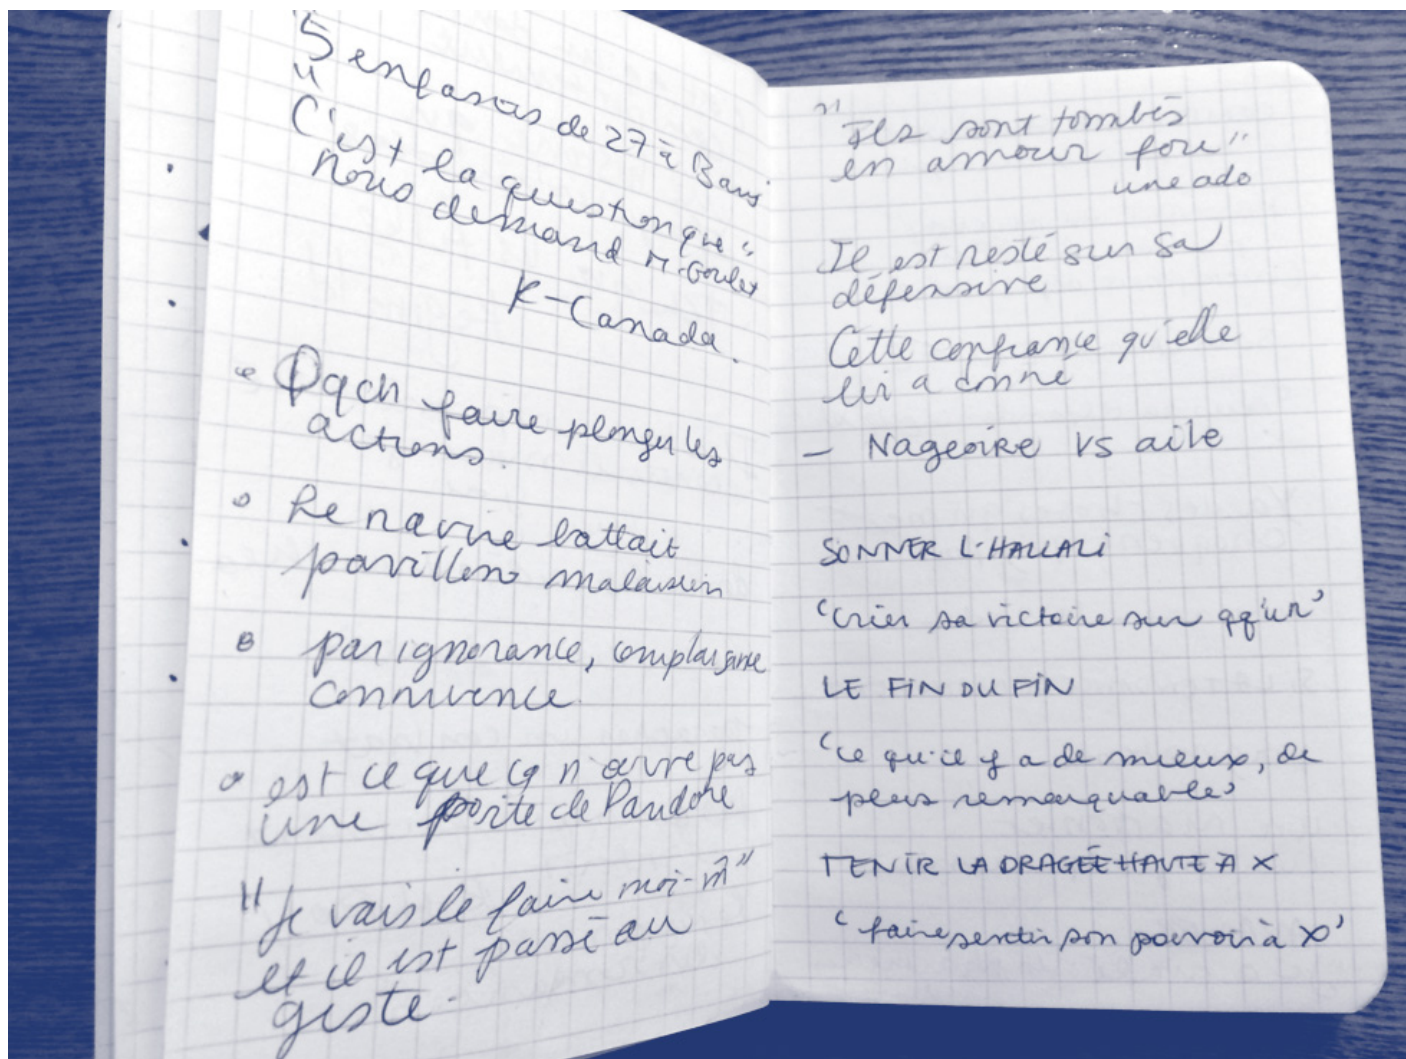 5 enfants de 27 à
"C'est la question que"
nous demand M. Goulet
K-Canada.
qch faire plonger les
actions.
Le navire battait
pavillon malaisien
par ignorance, complaisance
connivence
est ce que ça n'ouvre pas
une porte de Pandore
"Je vais le faire moi-m̂"
et il est passé au
geste.
"Ils sont tombés
en amour fou"
une ado
Il est resté sur sa
défensive
Cette confiance qu'elle
lui a donné
- Nageoire vs aile
SONNER L'HALLALi
'crier sa victoire sur qq'un'
LE FiN DU FiN
'ce qu'il y a de mieux, de
plus remarquable'
TENIR LA DRAGÉE HAUTE À X
'faire sentir son pouvoir à X'